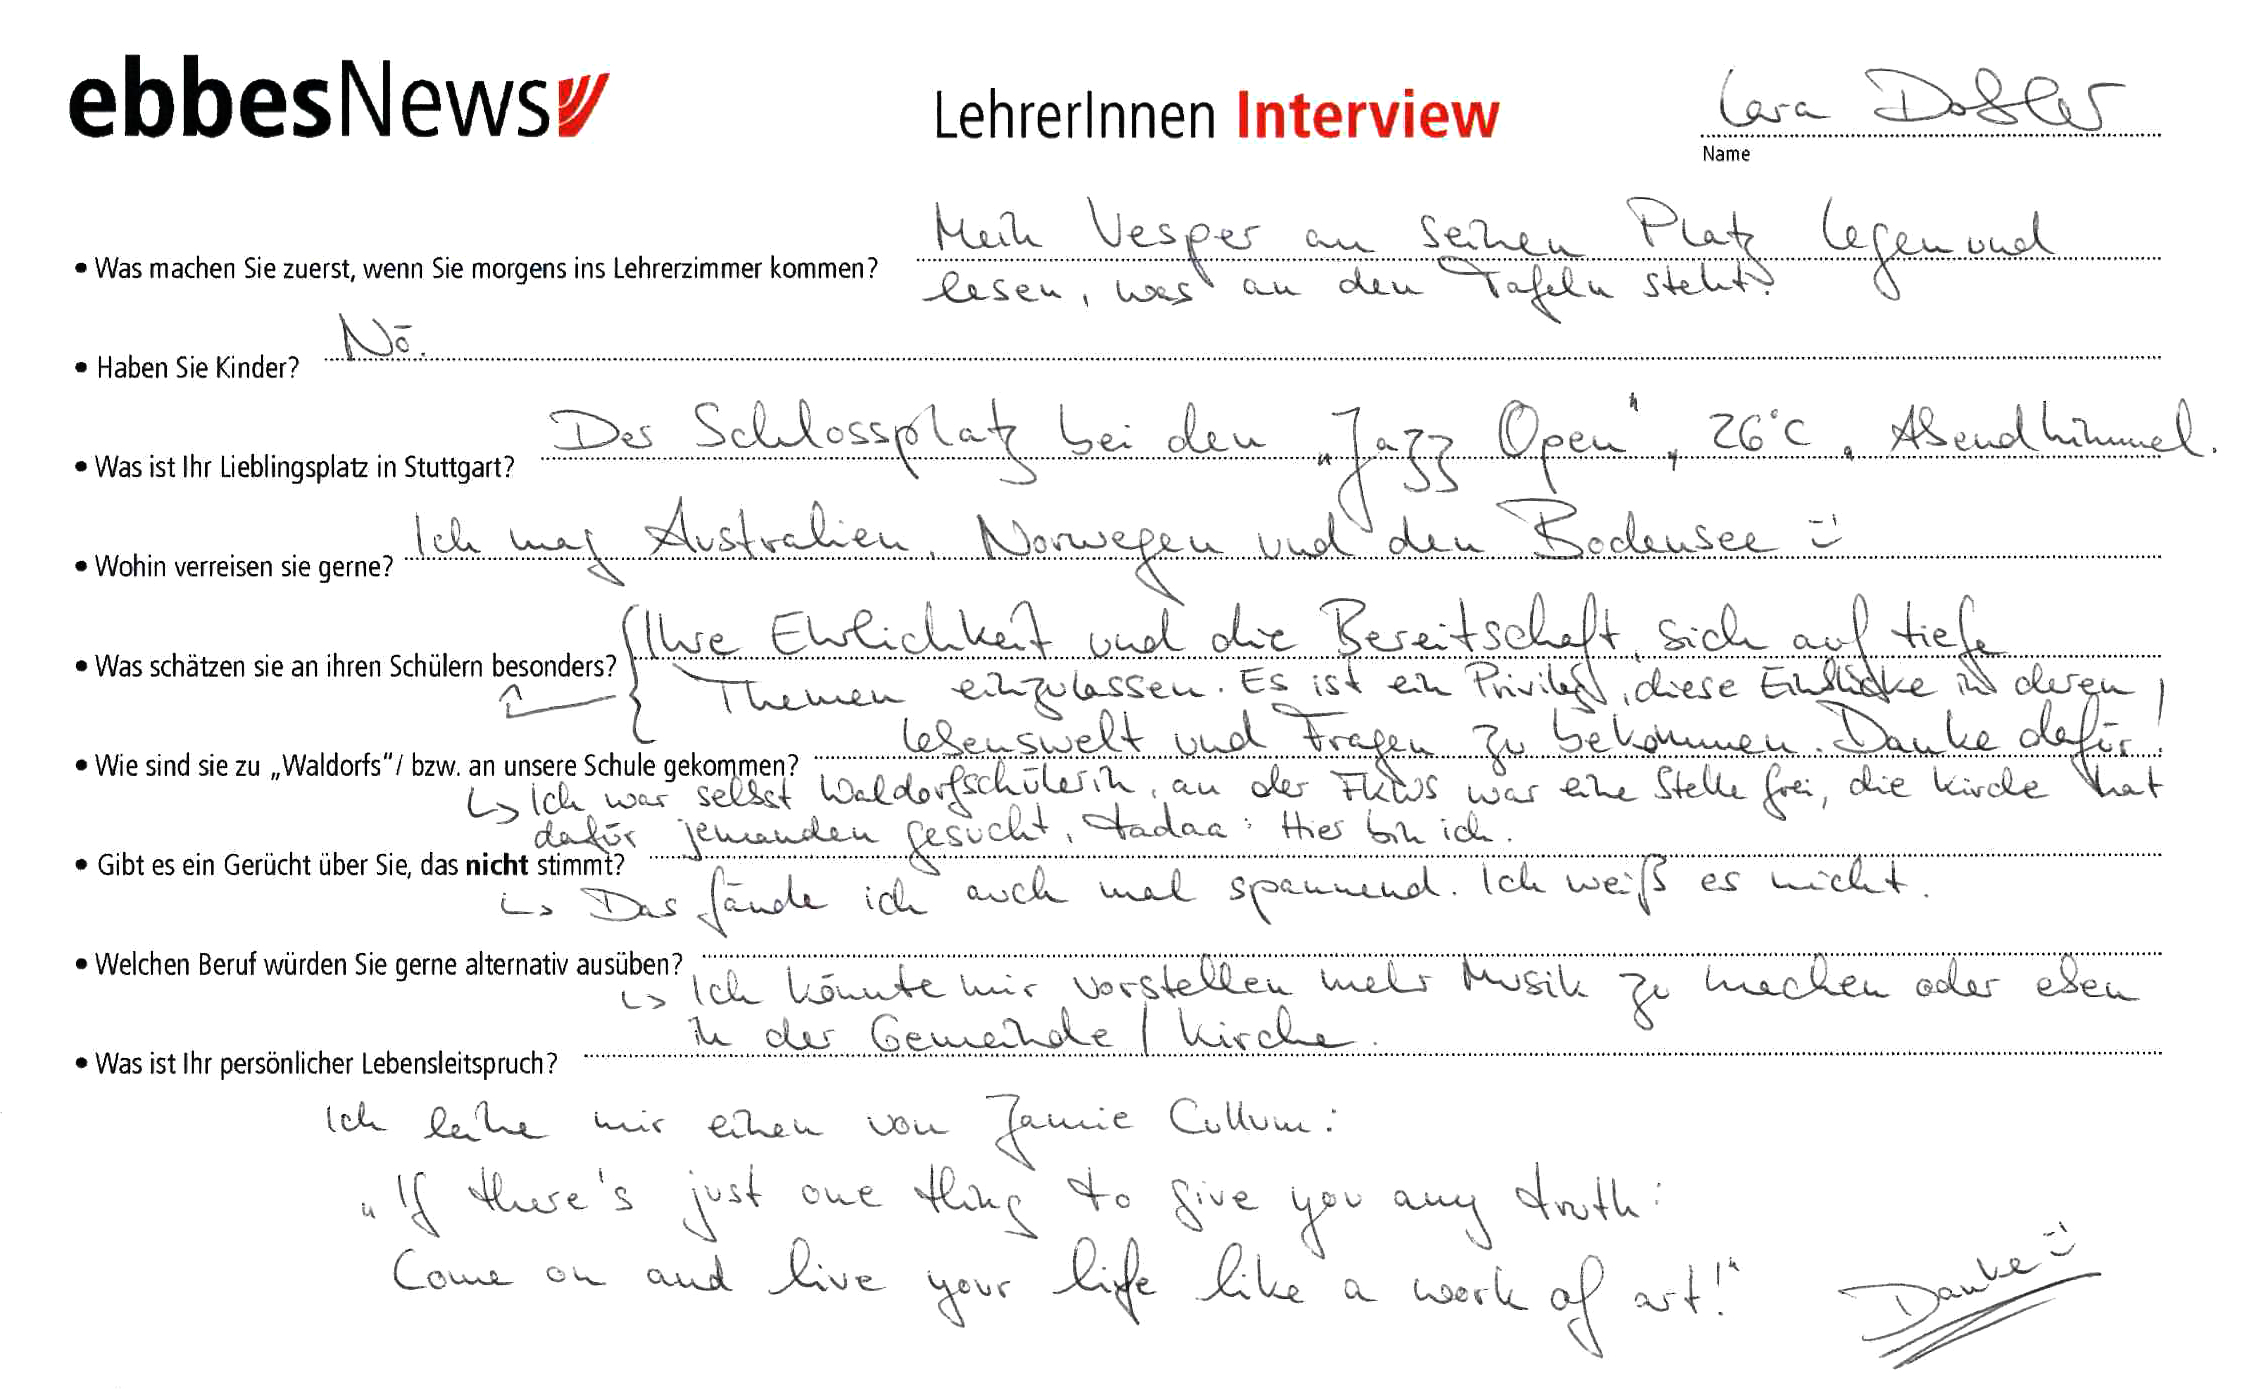 ebbesNews
LehrerInnen Interview
Name
Mein Vesper an seinen Platz legen und
• Was machen Sie zuerst, wenn Sie morgens ins Lehrerzimmer kommen?
lesen, was an den Tafeln steht.
• Haben Sie Kinder? Nö.
• Was ist Ihr Lieblingsplatz in Stuttgart? Der Schlossplatz bei den „Jazz Open", 26°C, Abendhimmel.
• Wohin verreisen sie gerne? Ich mag Australien, Norwegen und den Bodensee :-)
• Was schätzen sie an ihren Schülern besonders? Ihre Ehrlichkeit und die Bereitschaft, sich auf tiefe
Themen einzulassen. Es ist ein Privileg, diese Einblicke in deren
Lebenswelt und Fragen zu bekommen. Danke dafür!
• Wie sind sie zu „Waldorfs“/ bzw. an unsere Schule gekommen?
↳ Ich war selbst Waldorfschülerin, an der FKWS war eine Stelle frei, die Kirche hat
dafür jemanden gesucht, tadaa: Hier bin ich.
• Gibt es ein Gerücht über Sie, das nicht stimmt?
↳ Das fände ich auch mal spannend. Ich weiß es nicht.
• Welchen Beruf würden Sie gerne alternativ ausüben?
↳ Ich könnte mir vorstellen mehr Musik zu machen oder eben
in der Gemeinde / Kirche.
• Was ist Ihr persönlicher Lebensleitspruch?
Ich leihe mir einen von Jamie Cullum:
„If there's just one thing to give you any truth:
Come on and live your life like a work of art!"
Danke :-)